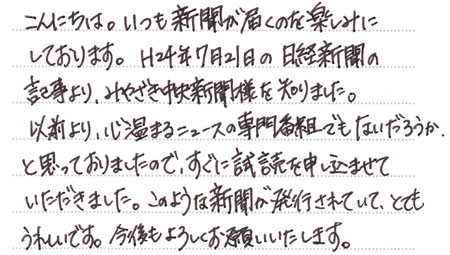 こんにちは。いつも新聞が届くのを楽しみに
しております。H24年7月21日の日経新聞の
記事より、みやざき中央新聞様を知りました。
以前より、心温まるニュースの専門番組でもないだろうか、
と思っておりましたので、すぐに試読を申し込ませて
いただきました。このような新聞が発行されていて、とても
うれしいです。今後もよろしくお願いいたします。